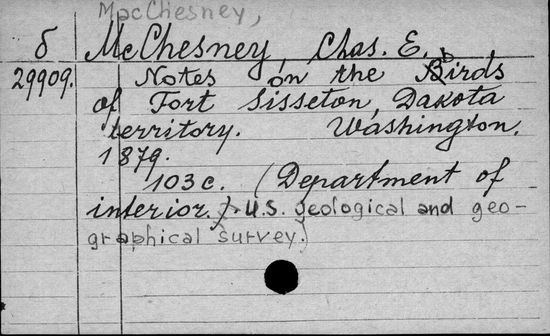 MacChesney,
б McChesney, Chas. E.
29909. Notes on the birds
of Fort Sisseton, Dakota
territory. Washington.
1879.
103 c. (Department of
interior.). U.S. geological and geo-
graphical survey.)